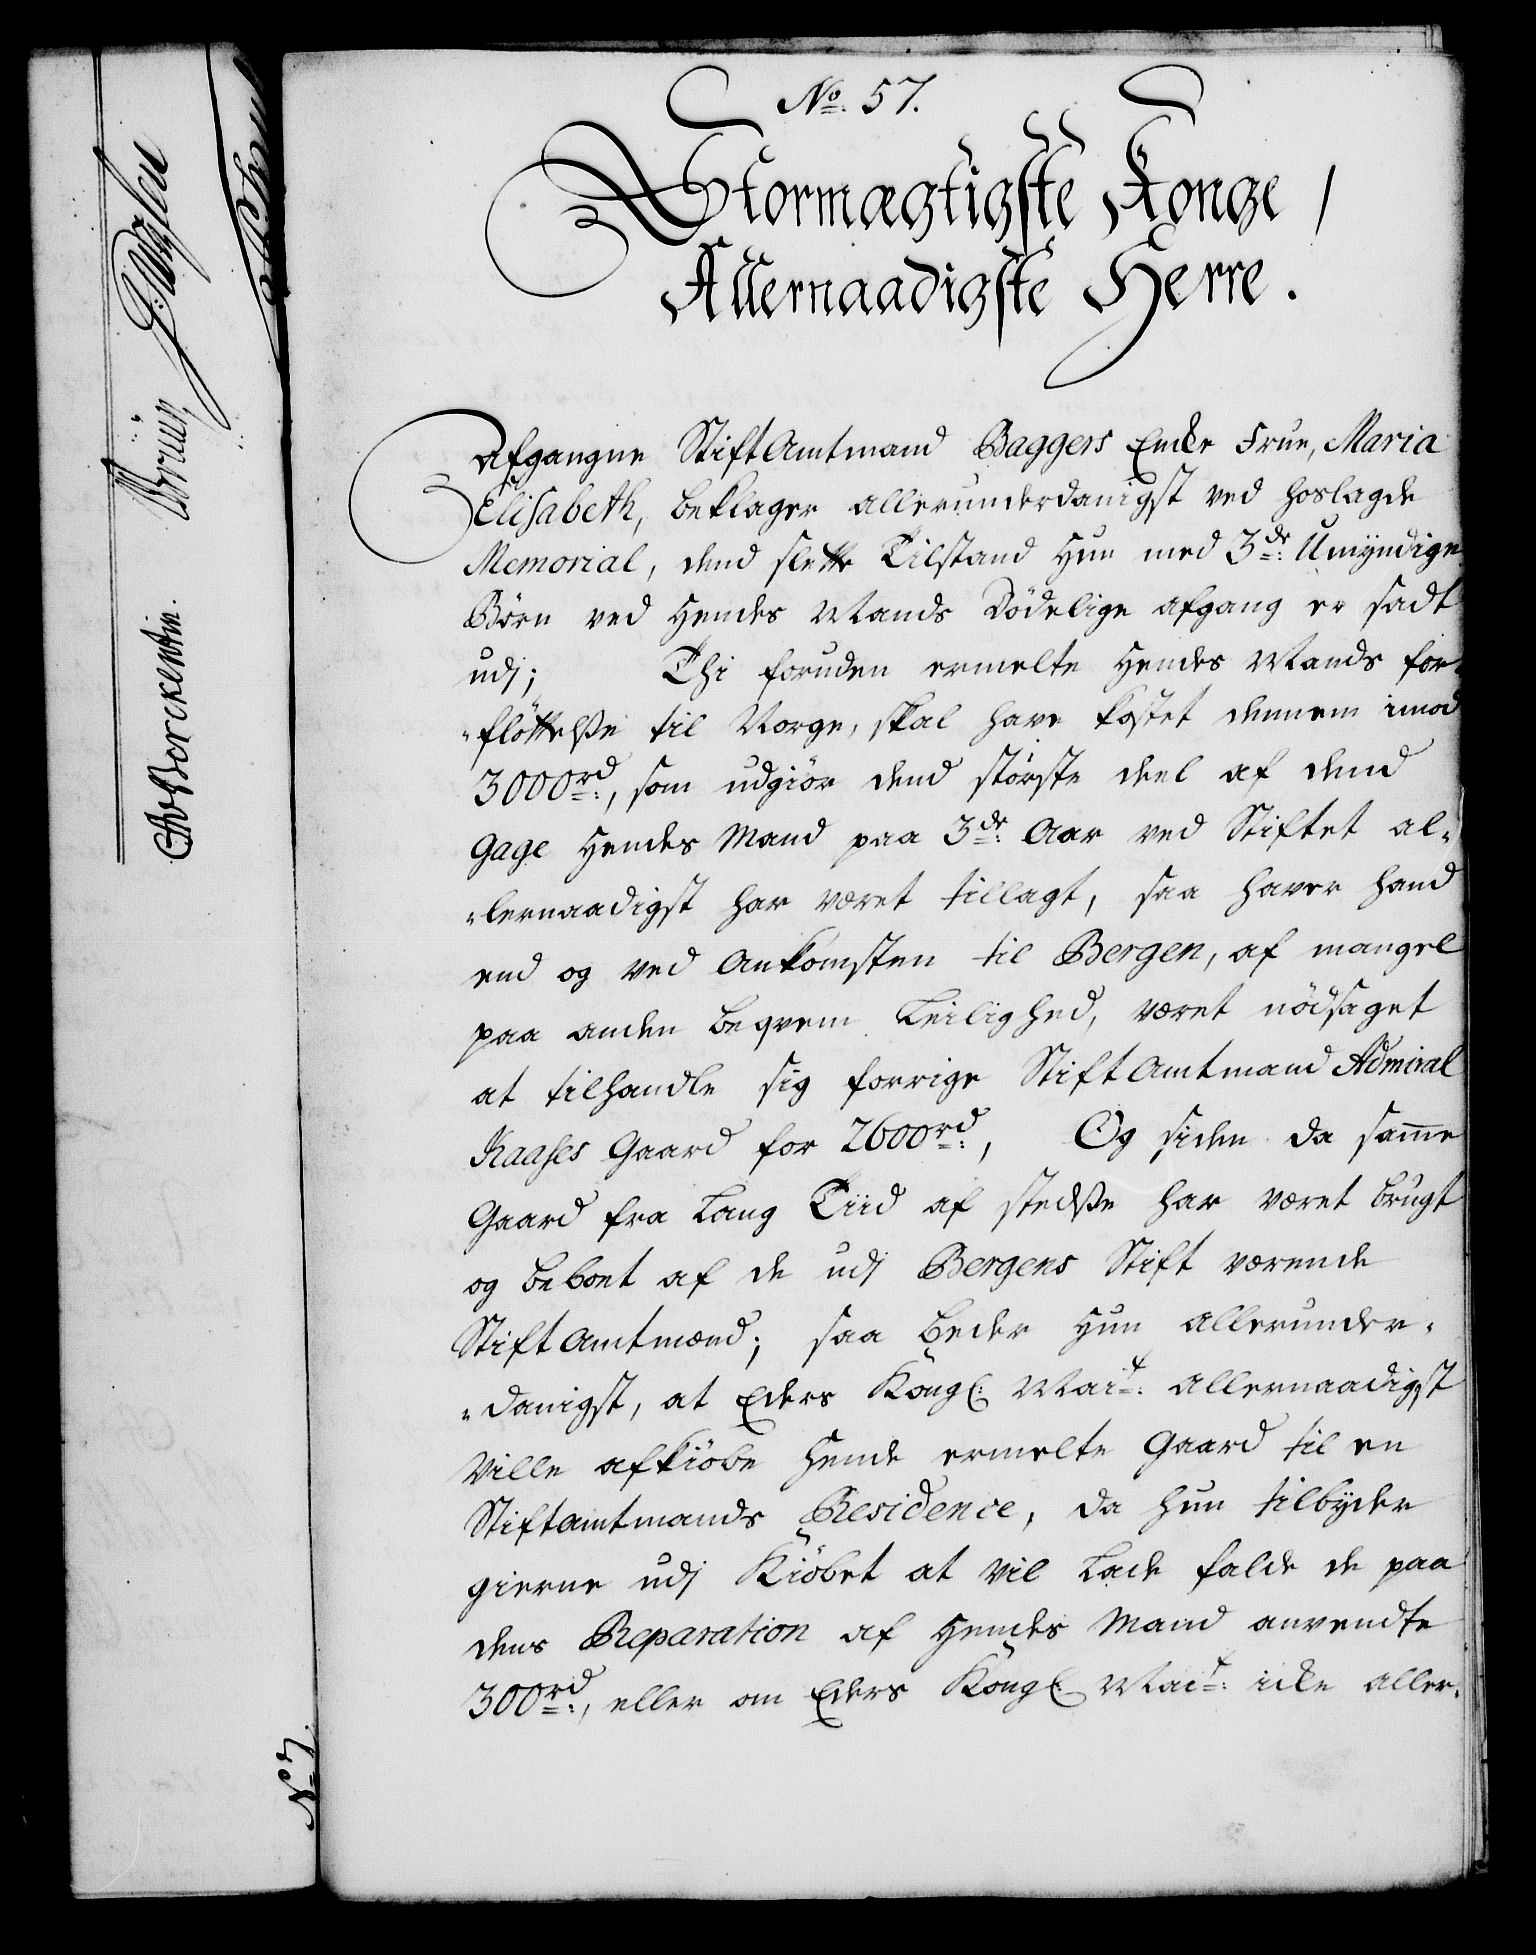 No. 57.
Stormægtigste Konge,
Allernaadigste Herre.
Afgangne StiftAmtmand Baggers Encke Frue, Maria
Elisabeth, beklager allerunderdanigst ved hoslagde
Memorial, dend slette Tilstand Hun med 3de: Umÿndige
Börn ved Hendes Mands Dödelige afgang er sadt
udj; Thi foruden ermelte Hendes Mands for-
-fløttelße til Norge, skal have kostet dennem imod
3000rd:, som udgiör dend störste deel af dend
Gage Hendes Mand paa 3de: Aar ved Stiftet al-
-lernaadigst har været tillagt, saa haver hand
end og ved Ankomsten til Bergen, af mangel
paa anden beqvem Leilighed, været nödsaget
at tilhandle sig forrige StiftAmtmand Admiral
Kaases Gaard for 2600rd:, Og siden da samme
Gaard fra Lang Tiid af stedße har været brugt
og beboet af de udj Bergens Stift værende
StiftAmtmænd; saa beder Hun Allerunder-
-danigst, at Eders Kongl: Mait: Allernaadigst
Ville afkiöbe Hende ermelte Gaard til en
Stiftamtmands Residence, da hun tilbÿder
gierne udj Kiöbet at vil Lade falde de paa
dens Reparation af Hendes Mand anvendte
300rd:, eller om Eders Kongl: Mait: icke aller-
CAvBerckentin.
Bruün
No 7.